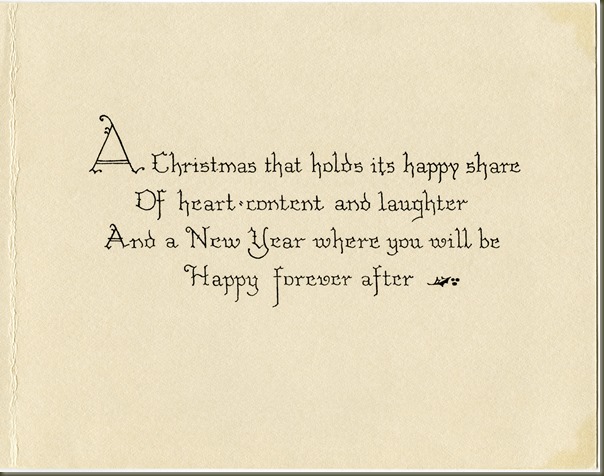 A Christmas that holds its happy share
Of heart-content and laughter
And a New Year where you will be
Happy forever after